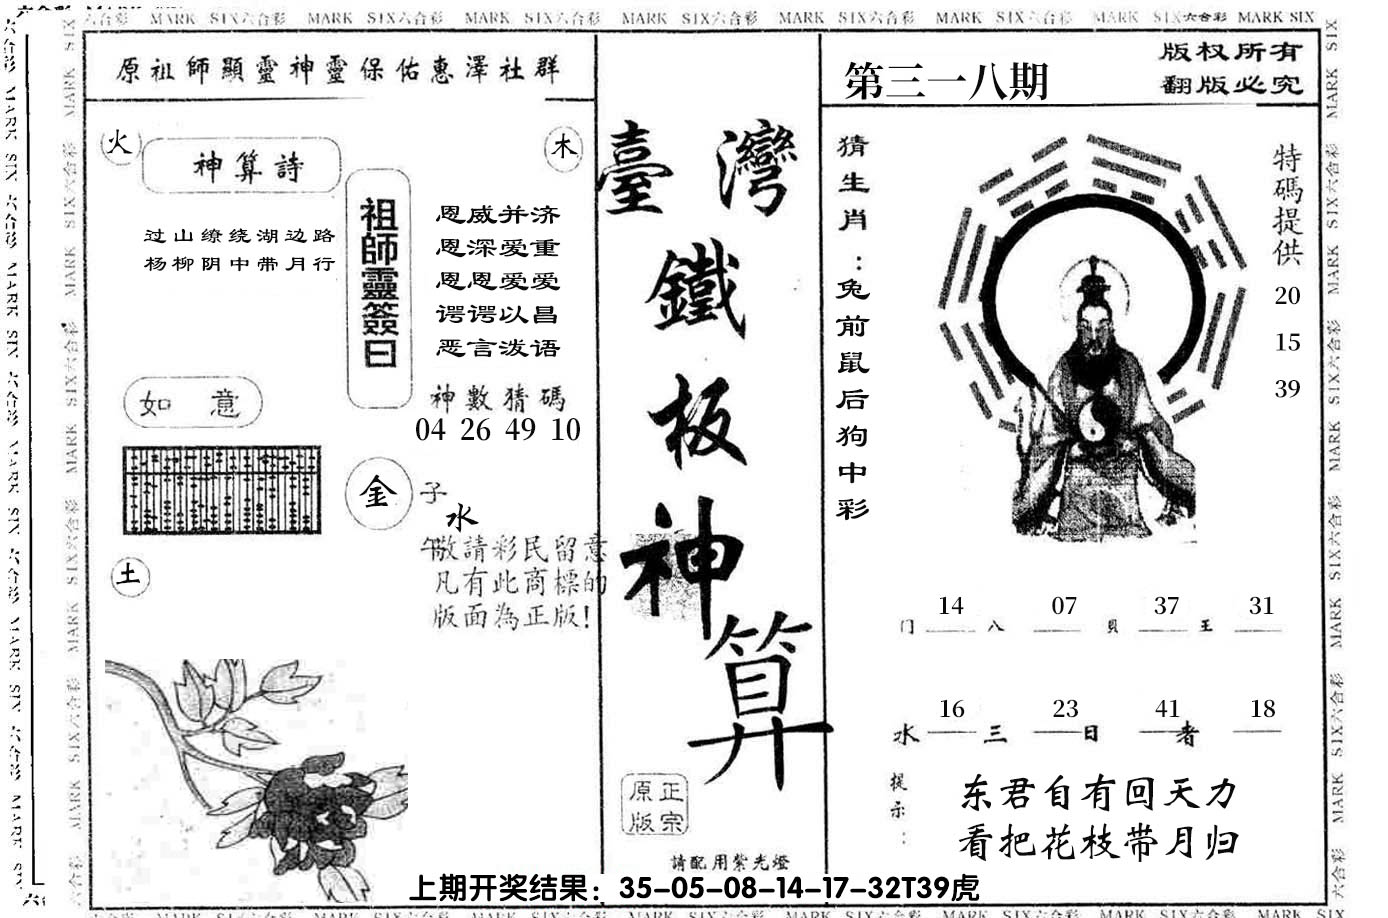 六合彩 MARK SIX六合彩 MARK SIX六合彩 MARK SIX六合彩 MARK SIX六合彩 MARK SIX六合彩 MARK SIX六合彩 MARK SIX六合彩 MARK SIX
原祖師顯靈神靈保佑惠澤社群
火
木
神算詩
过山缭绕湖边路
杨柳阴中带月行
祖師靈簽曰
恩威并济
恩深爱重
恩恩爱爱
谔谔以昌
恶言泼语
神數猜碼
04 26 49 10
如 意
金
子
水
午
土
敬請彩民留意
凡有此商標的
版面為正版!
臺灣
鐵
板
神
算
正宗
原版
請配用紫光燈
第三一八期
版权所有
翻版必究
猜生肖:兔前鼠后狗中彩
特碼提供
20
15
39
14 07 37 31
门 八 貝 王
16 23 41 18
水 三 日 者
提示:
东君自有回天力
看把花枝带月归
上期开奖结果：35-05-08-14-17-32T39虎